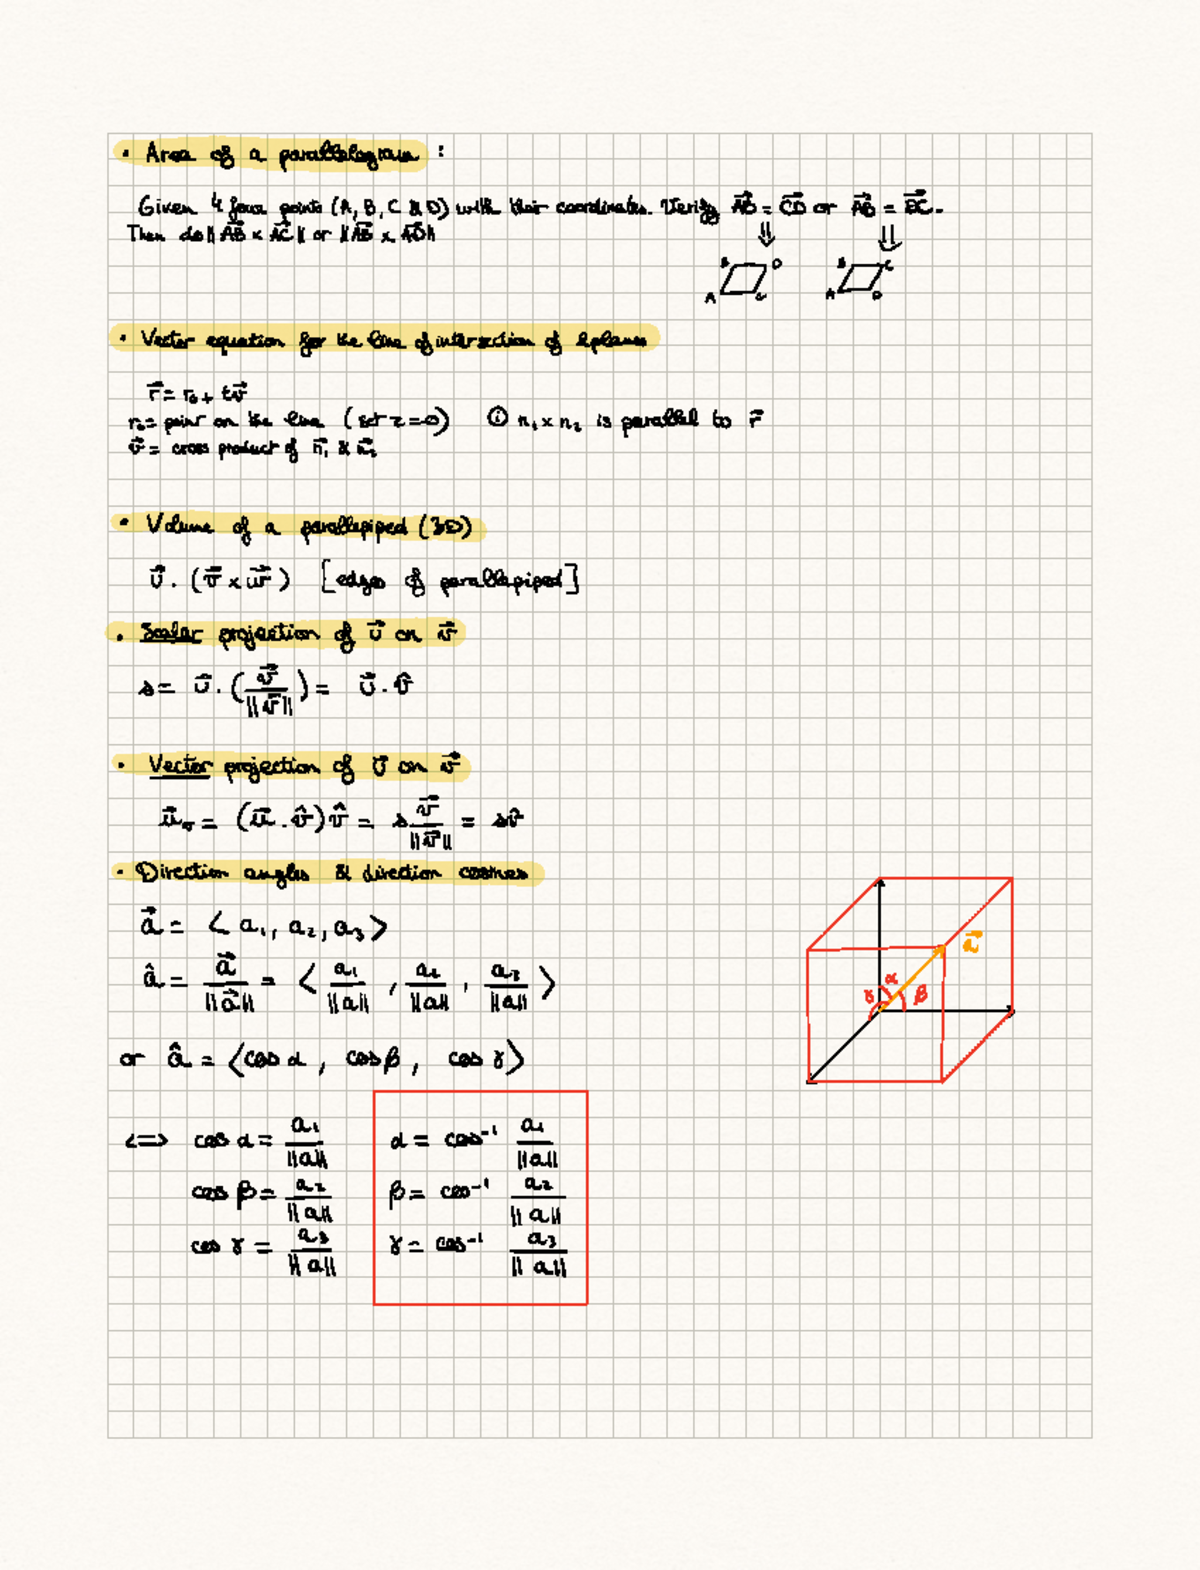 • Area of a parallelogram :
Given 4 four points (A, B, C & D) with their coordinates. Verify AB⃗ = CD⃗ or AB⃗ = DC⃗.
Then do ‖AB⃗ × AC⃗‖ or ‖AB⃗ × AD⃗‖
⇓ ⇓
B D B C
A C A D
• Vector equation for the line of intersection of 2 planes
r⃗ = r₀ + tv⃗
r₀ = point on the line (set z=0) ⓘ n₁ × n₂ is parallel to r⃗
v⃗ = cross product of n⃗₁ & n⃗₂
• Volume of a parallepiped (3D)
u⃗ . (v⃗ × w⃗) [edges of parallepiped]
• Scalar projection of u⃗ on v⃗
s = u⃗ . (v⃗ / ‖v⃗‖) = u⃗ . v̂
• Vector projection of u⃗ on v⃗
u⃗ᵥ = (u⃗ . v̂) v̂ = s v⃗ / ‖v⃗‖ = s v̂
• Direction angles & direction cosines
a⃗ = < a₁, a₂, a₃ >
â = a⃗ / ‖a⃗‖ = < a₁ / ‖a‖ , a₂ / ‖a‖ , a₃ / ‖a‖ >
a⃗
γ α β
or â = <cos α , cos β , cos γ>
<=> cos α = a₁ / ‖a‖ α = cos⁻¹ a₁ / ‖a‖
cos β = a₂ / ‖a‖ β = cos⁻¹ a₂ / ‖a‖
cos γ = a₃ / ‖a‖ γ = cos⁻¹ a₃ / ‖a‖